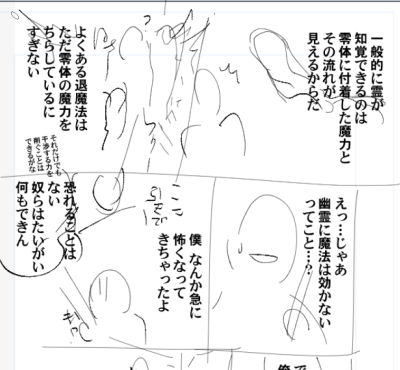 一般的に霊が
知覚できるのは
霊体に付着した魔力と
その流れが
見えるからだ
よくある退魔法は
ただ霊体の魔力を
ちらしているに
すぎない
それだけでも
干渉する力を
削ぐことは
できるがな
えっ…じゃあ
幽霊に魔法は効かない
ってこと…?
僕 なんか急に
怖くなって
きちゃったよ
恐れることは
ない
奴らはたいがい
何もできん